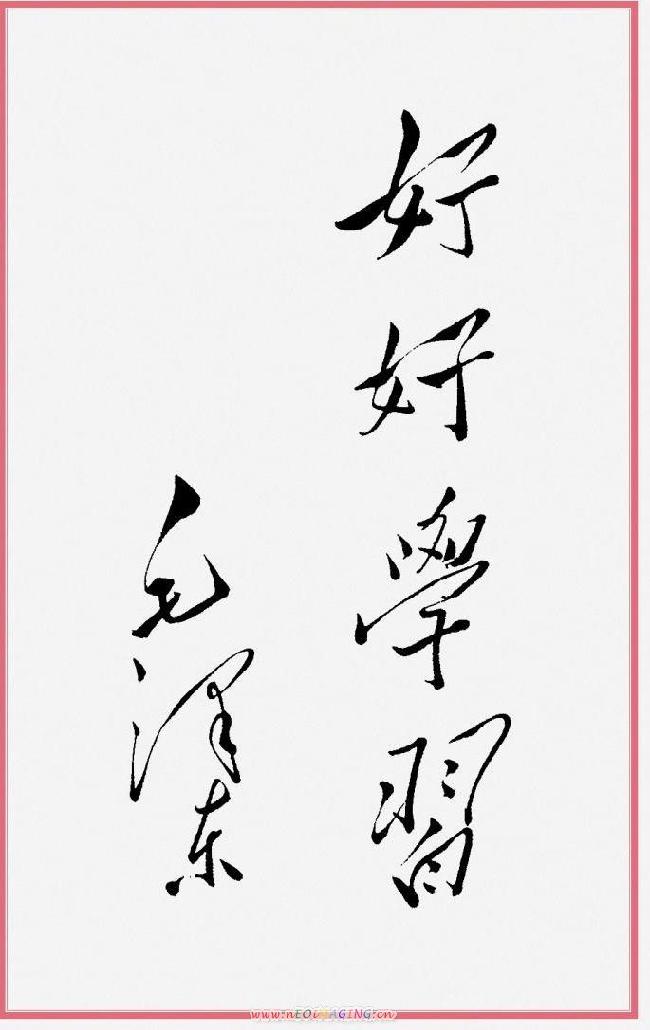 好好學習
毛澤东
www.nEOiMAGING.cn